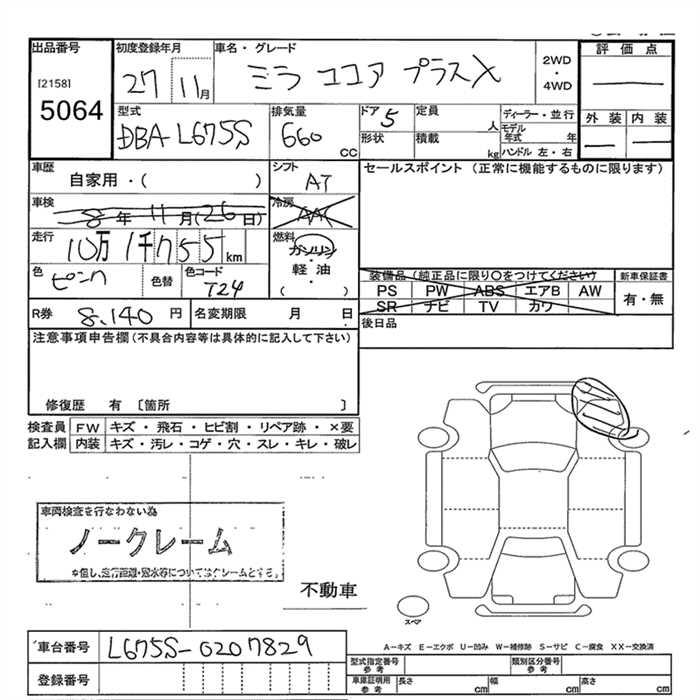 出品番号
[2158]
5064
初度登録年月
27 11月
車名・グレード
ミラ ココア プラスX
2WD
・
4WD
評価点
外装 内装
型式
DBA L675S
排気量
660
CC
ドア 5
形状
定員
人
積載
kg
ディーラー・並行
モデル
年式 年
ハンドル 左・右
車歴
自家用・( )
シフト
AT
セールスポイント (正常に機能するものに限ります)
車検
8年 11月(26日)
冷房
AAC
走行
10万 1千755km
燃料
ガソリン
・
軽油
・
( )
色
ピンク
色替
色コード
T24
装備品(純正品に限り〇をつけてください)
PS PW ABS エアB AW
SR ナビ TV カワ
新車保証書
有・無
R券 8,140 円
名変期限 月 日
後日品
注意事項申告欄(不具合内容等は具体的に記入して下さい)
修復歴 有 〔箇所 〕
検査員
記入欄
FW キズ・飛石・ヒビ割・リペア跡・×要
内装 キズ・汚レ・コゲ・穴・スレ・キレ・破レ
車両検査を行なわない為
ノークレーム
※但し、走行距離・冠水等についてはクレームとする。
不動車
スペア
車台番号 L675S-0207829
登録番号
A−キズ E−エクボ U−凹み W−補修跡 S−サビ C−腐食 XX−交換済
型式指定番号
参考
類別区分番号
参考
車庫証明用
参考
長さ cm 幅 cm 高さ cm